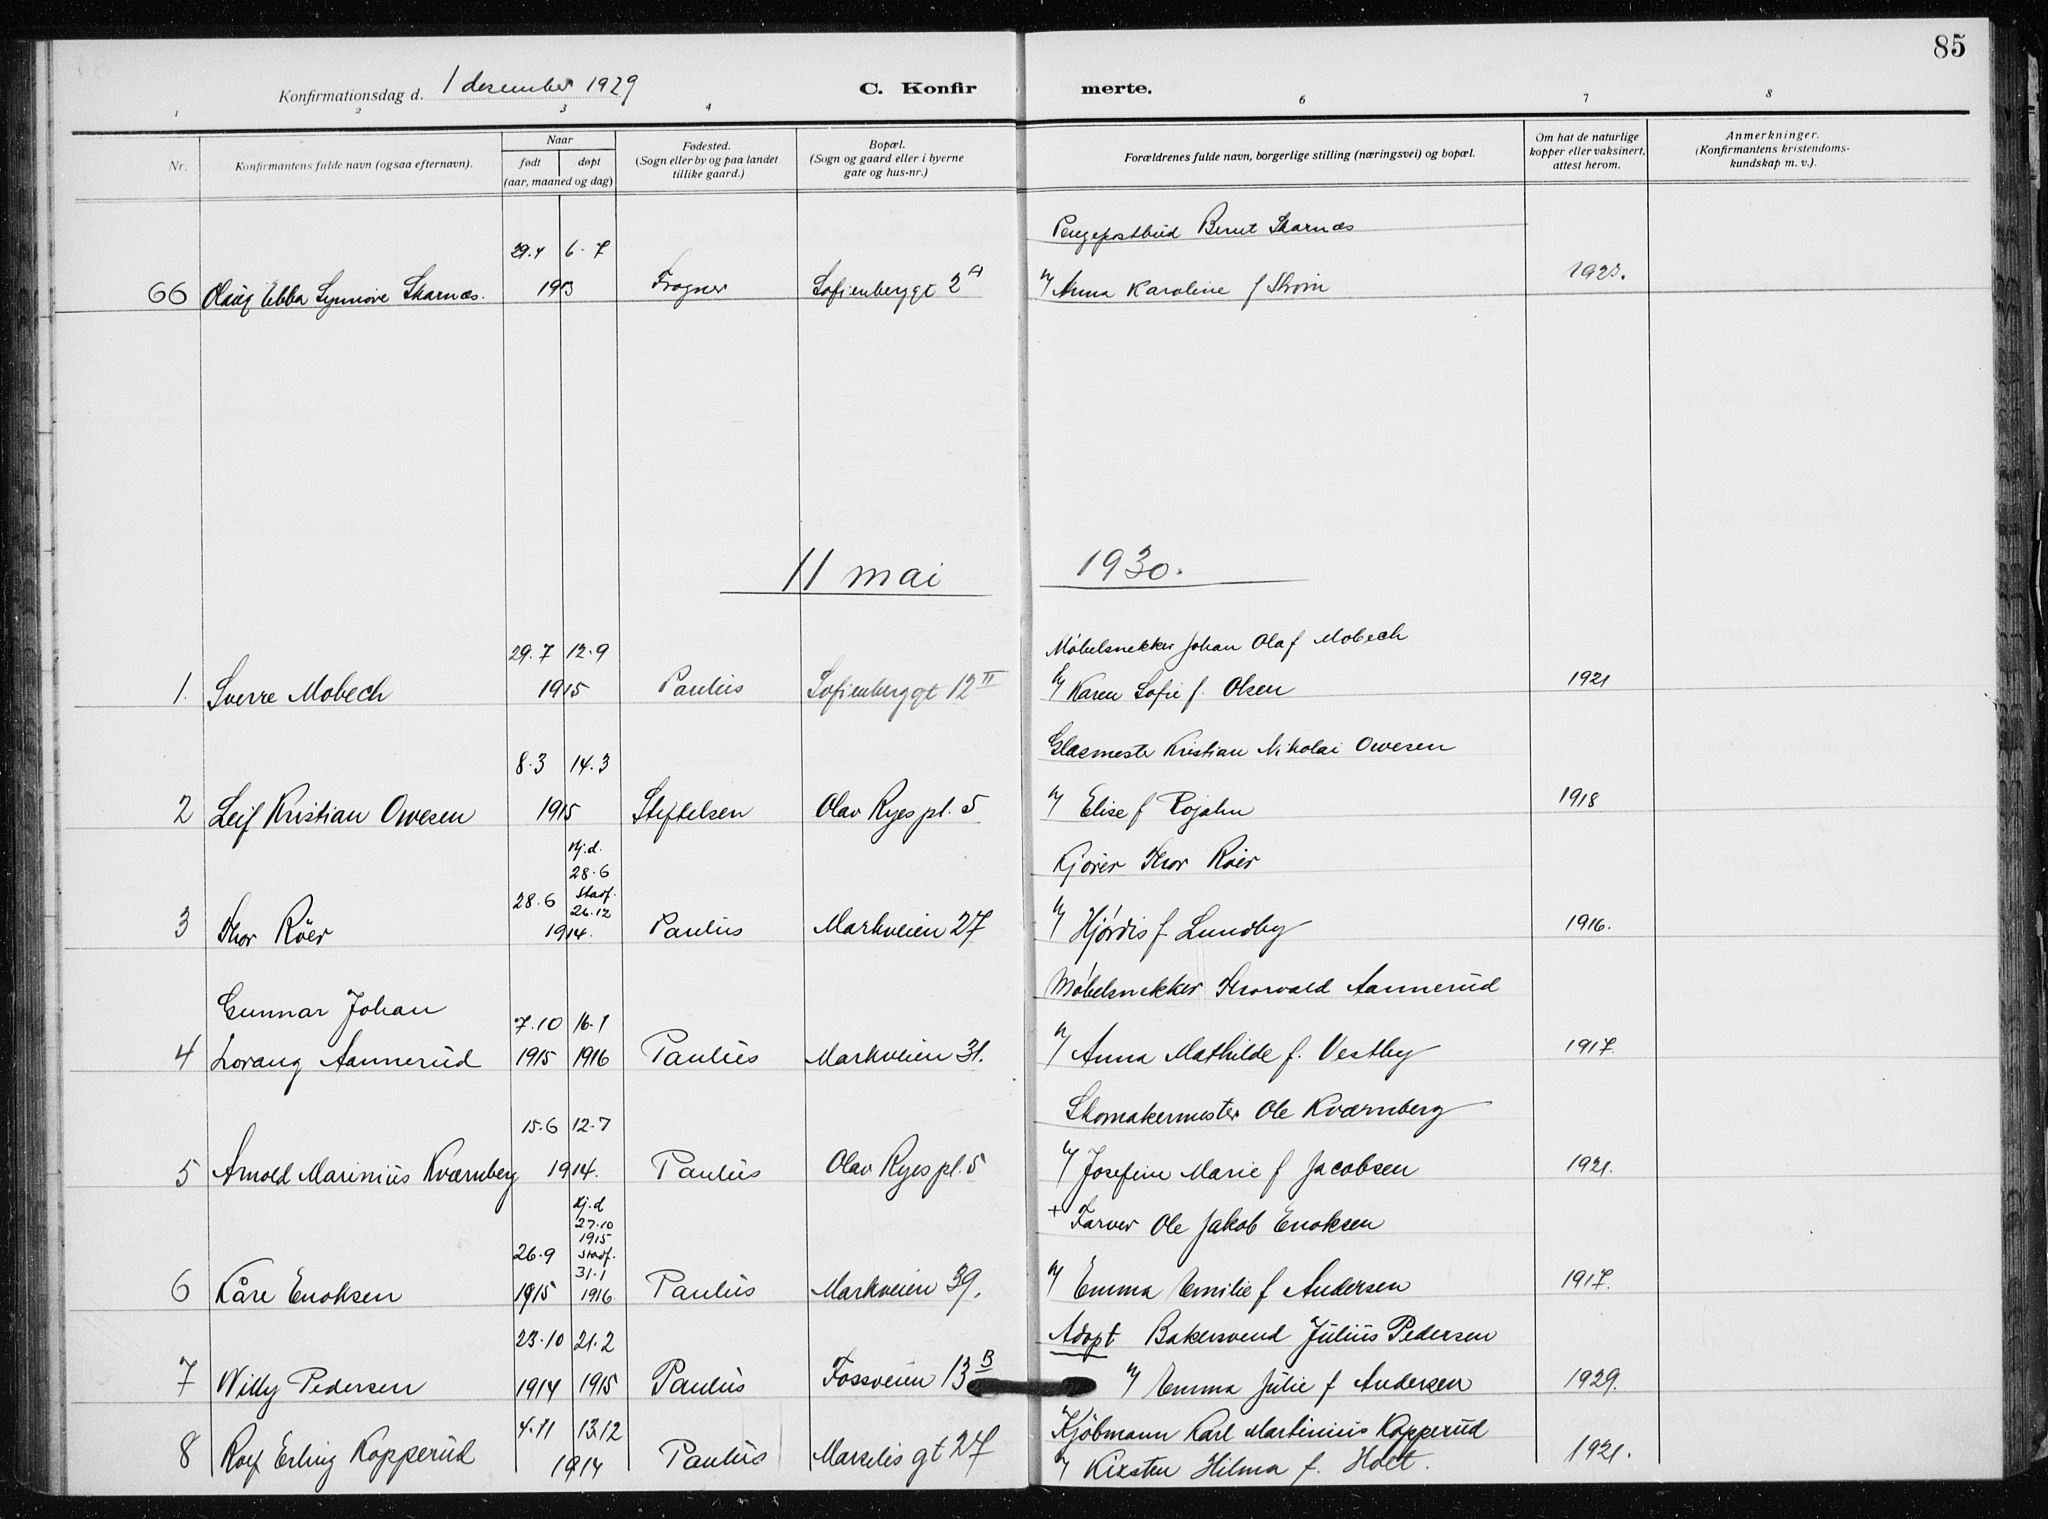 85
Konfirmationsdag d. 1 desember 1929
C. Konfirmerte.
1 2 3 4 6 7 8
Nr.
Konfirmantens fulde navn (ogsaa efternavn).
Naar
født døpt
(aar, maaned og dag)
Fødested.
(Sogn eller by og paa landet
tillike gaard.)
Bopæl.
(Sogn og gaard eller i byerne
gate og hus-nr.)
Forældrenes fulde navn, borgerlige stilling (næringsvei) og bopæl.
Om hat de naturlige
kopper eller vaksinert,
attest herom.
Anmerkninger.
(Konfirmantens kristendoms-
kundskap m. v.).
29.4 6-7 Pengepostbud Bernt Skarnæs
66 Olaug Ebba Synnöve Skarnæs. 1913 Frogner Sofienberggt 2 A Anna Karoline f 1923.
11 mai 1930.
29.7 12.9 Møbelsnekker Johan Olaf Mobech
1. Sverre Mobech 1915 Paulus Sofienberggt 12 II Karen Sofie f. Olsen 1921
8.3 14.3 Glasmester Kristian Nikolai Owesen
2 Leif Kristian Owesen 1915 Stiftelsen Olav Ryes pl. 5 Elise f Rojahn 1918
Hj.d.
28.6 Kjører Thor Röer
28.6 Stadf.
26.12
3 Thor Röer 1914. Paulus Markveien 27 Hjørdis f. Lundby 1916.
Møbelsnekker Thorvald Aannerud
Gunnar Johan 7.10 16.1
4 Lorang Aannerud 1915 1916 Paulus Markveien 31. Anna Mathilde f. Vestby 1917.
15.6 12.7 Skomakermester Ole Kværnberg
5 Arnold Marinius Kværnberg 1914. Paulus Olav Ryes pl. 5 Josefine Marie f Jacobsen 1921.
Hj.d
27.10 + Farver Ole Jakob Enoksen
1915
26.9 Stadf.
31.1
6 Kåre Enoksen 1915 1916 Paulus Markveien 39. Emma Emilie f Andersen 1917.
23.10 21.2 Adopt Bakersvend Julius Pedersen
7 Willy Pedersen 1914 1915 Paulus Fossveien 13 B Emma Julie f Andersen 1929.
4.11 13.12 Kjöbmann Karl Martinius Kopperud
8 Rolf Erling Kopperud 1914 Paulus Markveis gt 27 Kirsten Hilma f. Holt. 1921.